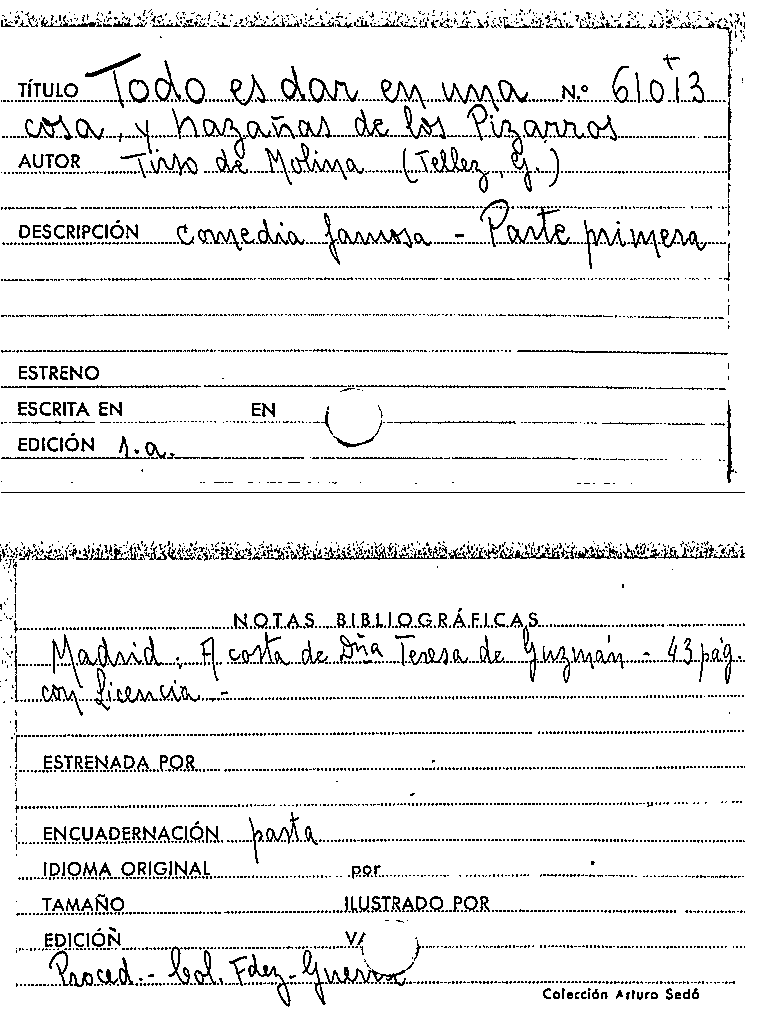 TÍTULO Todo es dar en una N.º 61013
cosa, y hazañas de los Pizarros
AUTOR Tirso de Molina (Tellez, G.)
DESCRIPCIÓN Comedia famosa - Parte primera
ESTRENO
ESCRITA EN EN
EDICIÓN s.a.
NOTAS BIBLIOGRÁFICAS
Madrid: A costa de Dña Teresa de Guzmán - 43 pág.
con licencia -
ESTRENADA POR
ENCUADERNACIÓN pasta
IDIOMA ORIGINAL por
TAMAÑO ILUSTRADO POR
EDICIÓN V/
Proced.- Col. Fdez-Guerra
Colección Arturo Sedó